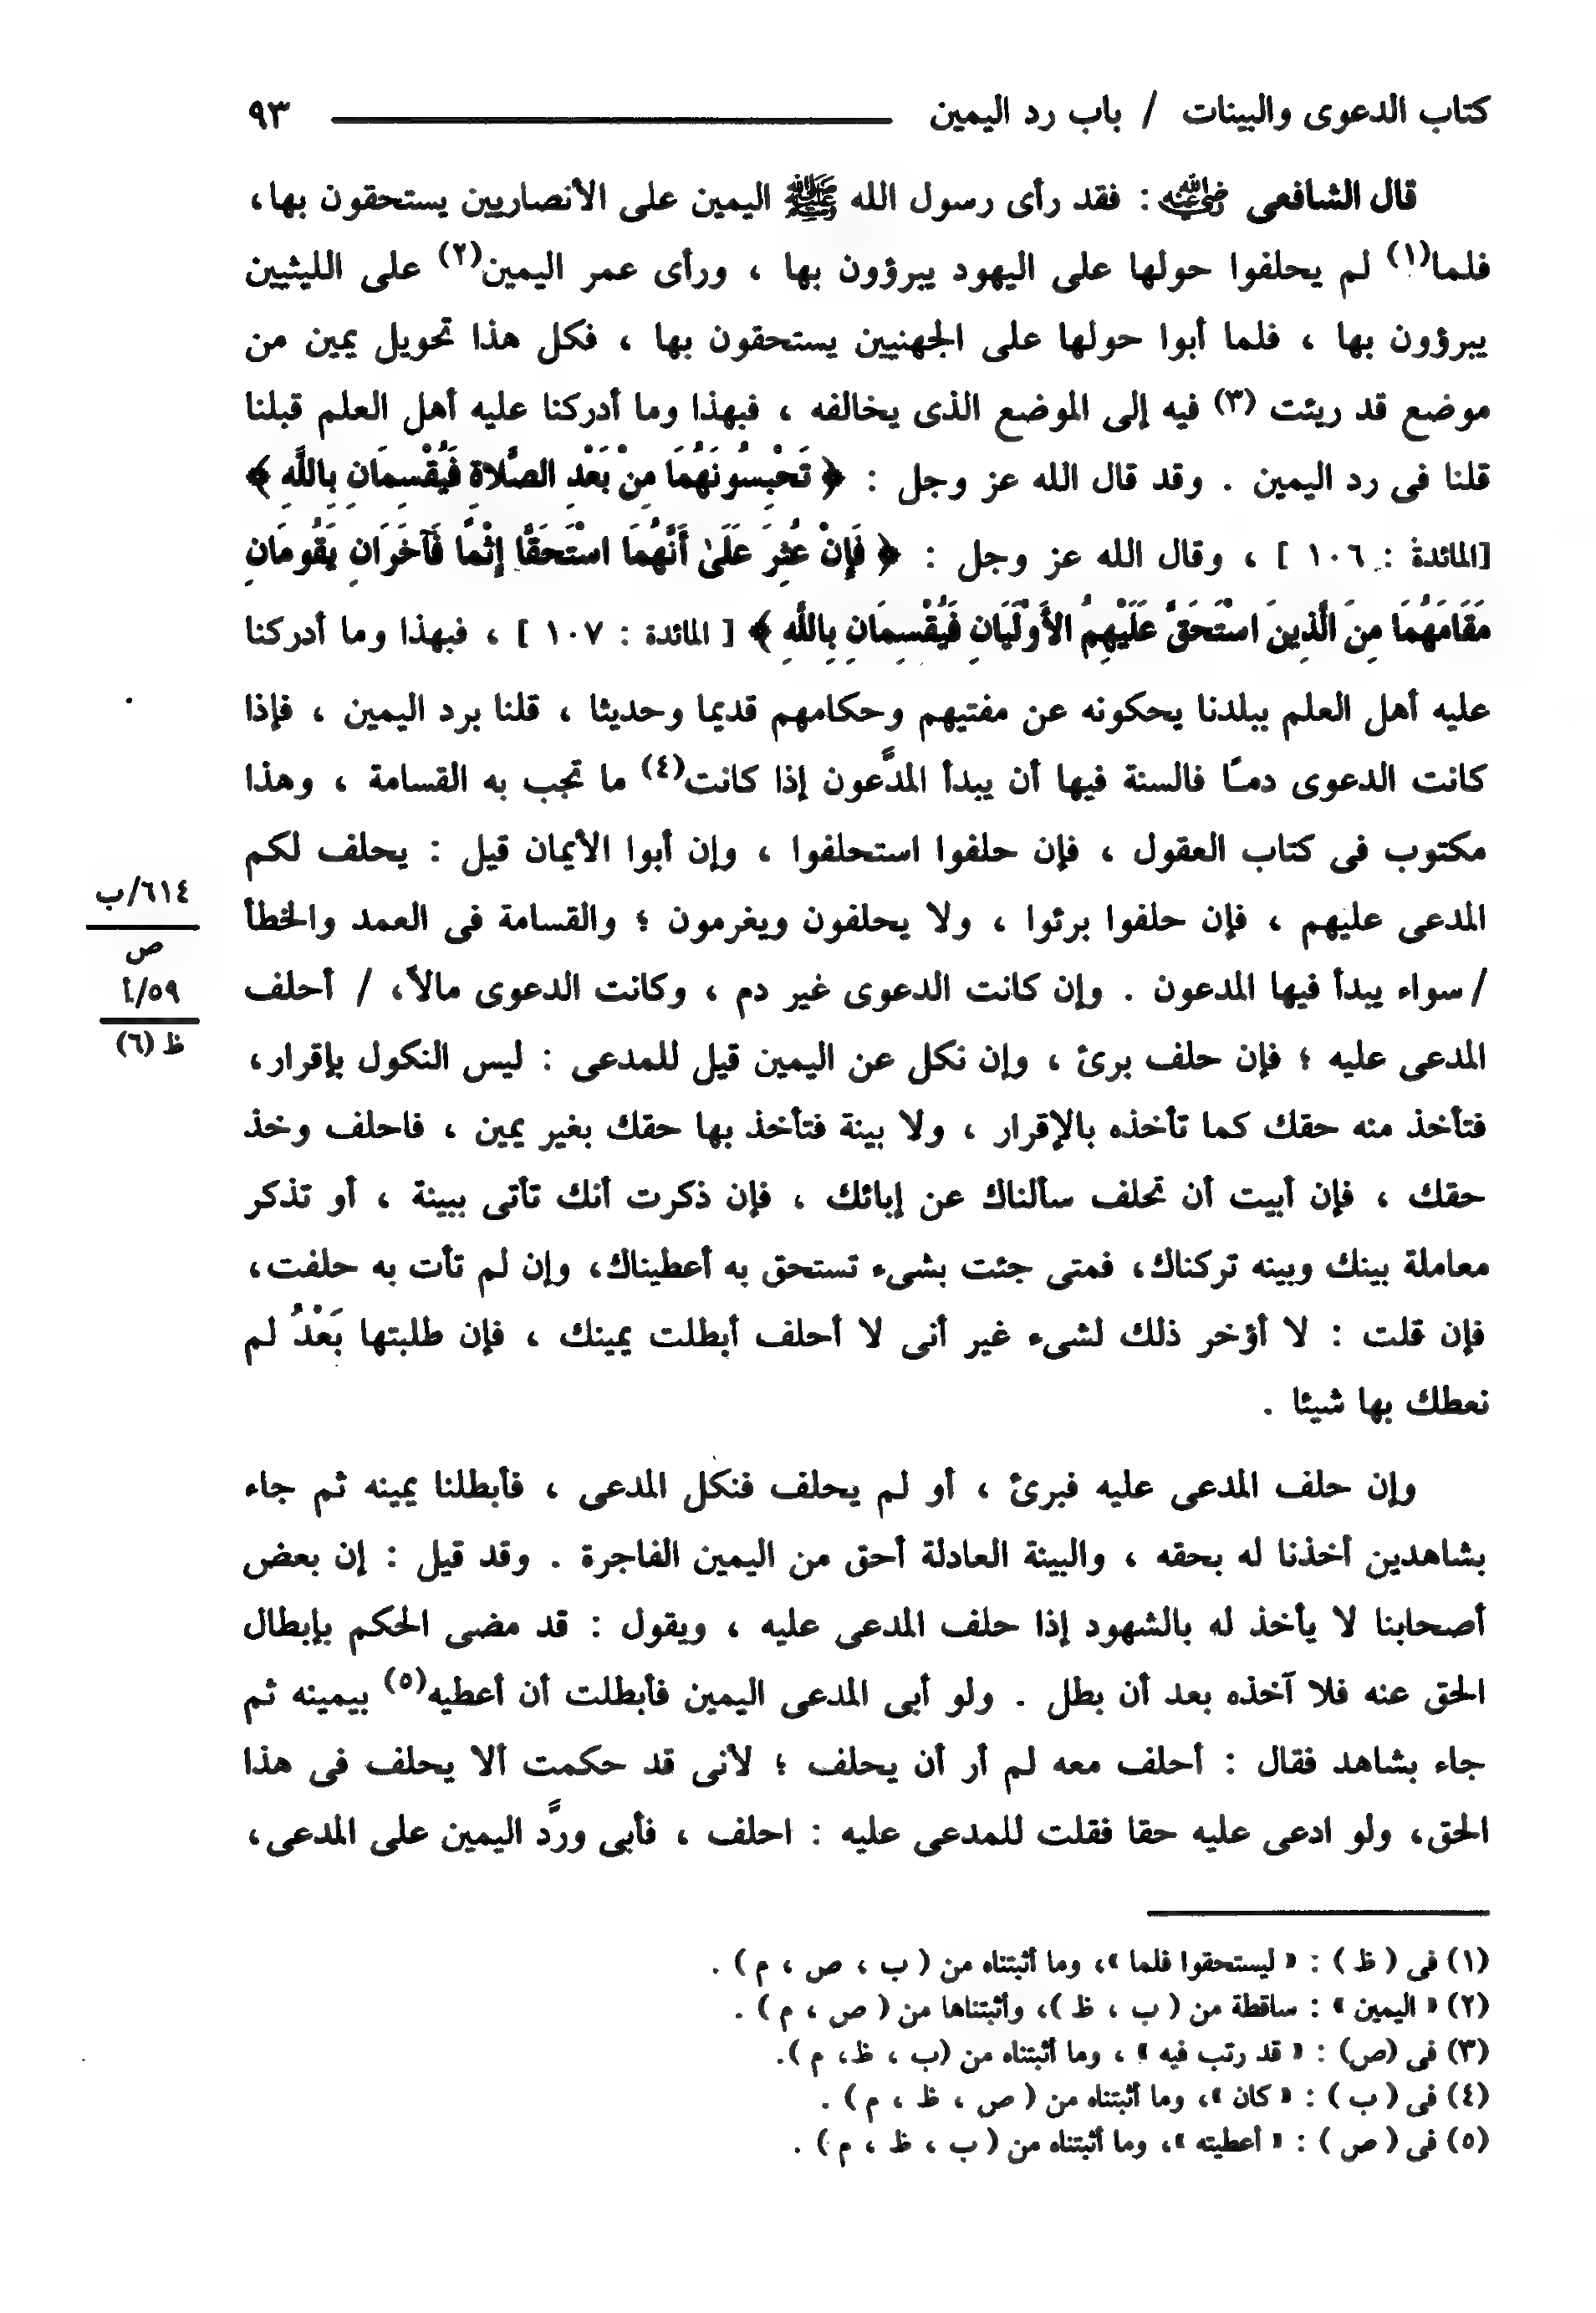 كتاب الدعوى والبينات / باب رد اليمين ٩٣
قال الشافعى رضي الله عنه : فقد رأى رسول الله ﷺ اليمين على الأنصاريين يستحقون بها،
فلما(١) لم يحلفوا حولها على اليهود يبرؤون بها ، ورأى عمر اليمين(٢) على الليثيين
يبرؤون بها ، فلما أبوا حولها على الجهنيين يستحقون بها ، فكل هذا تحويل يمين من
موضع قد ريئت (٣) فيه إلى الموضع الذى يخالفه ، فبهذا وما أدركنا عليه أهل العلم قبلنا
قلنا فى رد اليمين . وقد قال الله عز وجل : ﴿ تَحْبِسُونَهُمَا مِنْ بَعْدِ الصَّلاةِ فَيُقْسِمَانِ بِاللَّهِ ﴾
[المائدة : ١٠٦ ] ، وقال الله عز وجل : ﴿ فَإِنْ عُثِرَ عَلَىٰ أَنَّهُمَا اسْتَحَقَّا إِثْمًا فَآخَرَانِ يَقُومَانِ
مَقَامَهُمَا مِنَ الَّذِينَ اسْتَحَقَّ عَلَيْهِمُ الأَوْلَيَانِ فَيُقْسِمَانِ بِاللَّهِ ﴾ [ المائدة : ١٠٧ ] ، فبهذا وما أدركنا
عليه أهل العلم ببلدنا يحكونه عن مفتيهم وحكامهم قديما وحديثا ، قلنا برد اليمين ، فإذا
كانت الدعوى دمًا فالسنة فيها أن يبدأ المدَّعون إذا كانت(٤) ما تجب به القسامة ، وهذا
مكتوب فى كتاب العقول ، فإن حلفوا استحلفوا ، وإن أبوا الأيمان قيل : يحلف لكم
المدعى عليهم ، فإن حلفوا برئوا ، ولا يحلفون ويغرمون ؛ والقسامة فى العمد والخطأ
/ سواء يبدأ فيها المدعون . وإن كانت الدعوى غير دم ، وكانت الدعوى مالاً، / أحلف
المدعى عليه ؛ فإن حلف برئ ، وإن نكل عن اليمين قيل للمدعى : ليس النكول بإقرار،
فتأخذ منه حقك كما تأخذه بالإقرار ، ولا بينة فتأخذ بها حقك بغير يمين ، فاحلف وخذ
حقك ، فإن أبيت أن تحلف سألناك عن إبائك ، فإن ذكرت أنك تأتى ببينة ، أو تذكر
معاملة بينك وبينه تركناك، فمتى جئت بشىء تستحق به أعطيناك، وإن لم تأت به حلفت،
فإن قلت : لا أؤخر ذلك لشىء غير أنى لا أحلف أبطلت يمينك ، فإن طلبتها بَعْدُ لم
نعطك بها شيئا .
وإن حلف المدعى عليه فبرئ ، أو لم يحلف فنكل المدعى ، فأبطلنا يمينه ثم جاء
بشاهدين أخذنا له بحقه ، والبينة العادلة أحق من اليمين الفاجرة . وقد قيل : إن بعض
أصحابنا لا يأخذ له بالشهود إذا حلف المدعى عليه ، ويقول : قد مضى الحكم بإبطال
الحق عنه فلا آخذه بعد أن بطل . ولو أبى المدعى اليمين فأبطلت أن أعطيه(٥) بيمينه ثم
جاء بشاهد فقال : أحلف معه لم أر أن يحلف ؛ لأنى قد حكمت ألا يحلف فى هذا
الحق، ولو ادعى عليه حقا فقلت للمدعى عليه : احلف ، فأبى وردَّ اليمين على المدعى،
٦١٤/ب
ص
٥٩/أ
ظ (٦)
(١) فى ( ظ ) : « ليستحقوا فلما »، وما أثبتناه من ( ب ، ص ، م ) .
(٢) « اليمين » : ساقطة من ( ب ، ظ )، وأثبتناها من ( ص ، م ) .
(٣) فى (ص) : « قد رتب فيه » ، وما أثبتناه من (ب ، ظ، م ).
(٤) فى ( ب ) : « كان »، وما أثبتناه من ( ص ، ظ ، م ) .
(٥) فى ( ص ) : « أعطيته »، وما أثبتناه من ( ب ، ظ ، م ) .